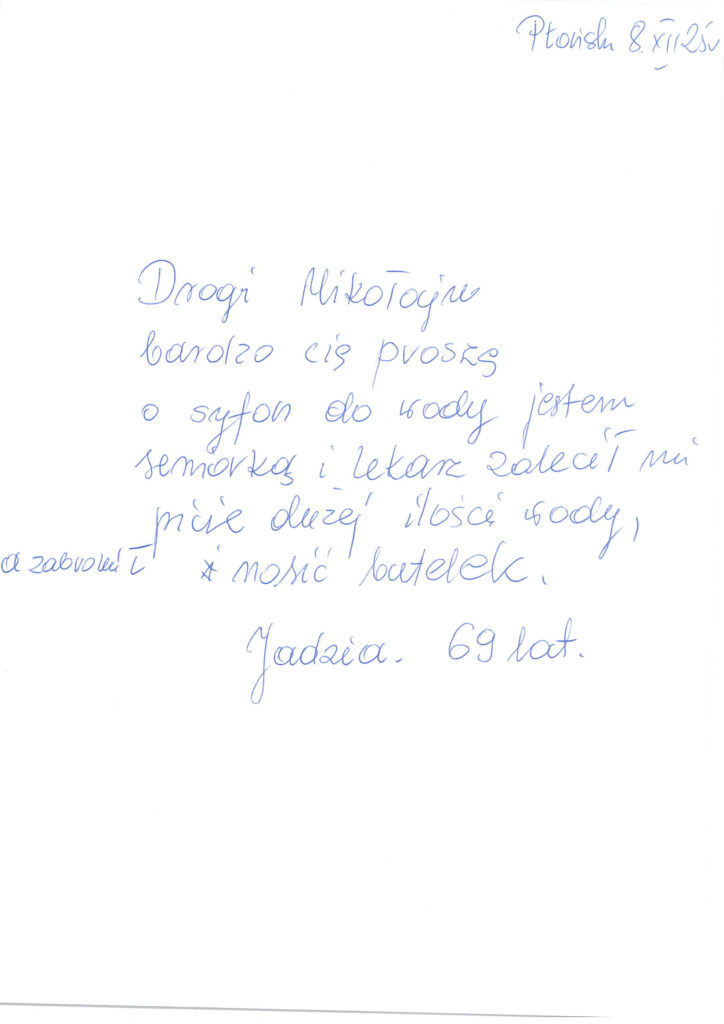 Płońsk 8.XII 25r
Drogi Mikołaju
bardzo cię proszę
o syfon do wody jestem
seniorką i lekarz zalecił mi
picie dużej ilości wody,
a zabronił nosić butelek.
Jadzia. 69 lat.